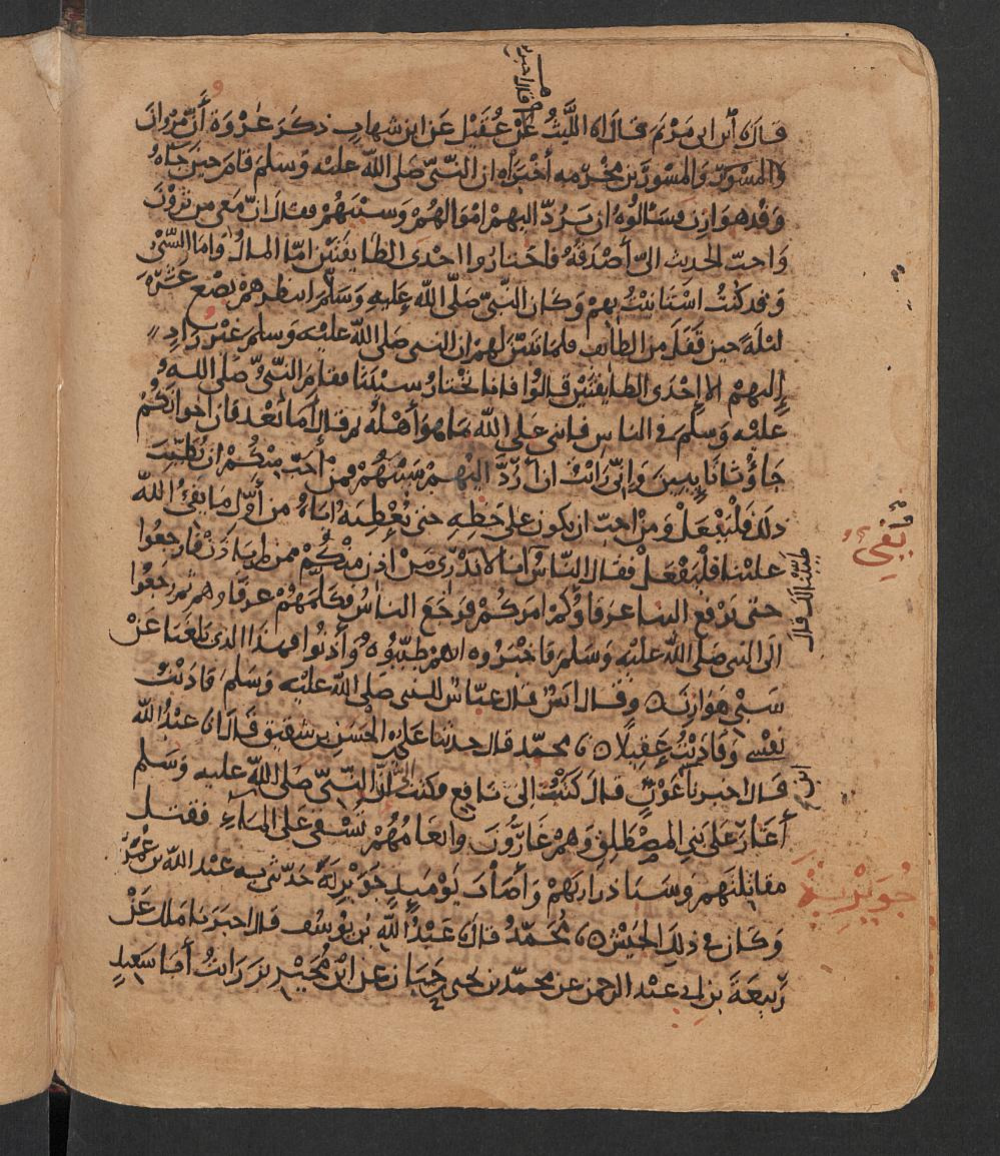 قال ابن ابى مريم قال انا الليث عن عقيل عن ابن شهاب ذكر عروة أن مروان
والمسور بن مخرمه أخبراه ان النبى صلى الله عليه وسلم قام حين جاه
وفد هوازن فسالوه ان يرد اليهم اموالهم وسبيهم فقال ان معى من ترون
واحب الحديث الى أصدقه فاختاروا احدى الطايفتين اما المال واما السبى
وقد كنت استانيت بهم وكان النبى صلى الله عليه وسلم انتظرهم بضع عشره
ليلة حين قفل من الطايف فلما تبين لهم ان النبى صلى الله عليه وسلم غير راد
إليهم الا إحدى الطايفتين قالوا فانا نختار سبينا فقام النبى صلى الله
عليه وسلم فى الناس فاثنى على الله بما هو أهله ثم قال أما بعد فان اخوانكم
جاؤنا تايبين وإنى رايت ان أرد اليهم سبيهم فمن احب منكم ان يطيب
ذلك فليفعل ومن احب ان يكون على حظه حتى نعطيه اياه من أول ما يفئ الله
علينا فليفعل فقال الناس
طيبنا لك قال
انا لا ندرى من اذن منكم ممن لم ياذن فارجعوا
حتى يرفع الينا عرفاؤكم امركم فرجع الناس فكلمهم عرفاوهم ثم رجعوا
الى النبى صلى الله عليه وسلم فاخبروه انهم طيبوا وأذنوا فهذا الذى بلغنا عن
سبى هوازن وقال انس قال عباس للنبى صلى الله عليه وسلم فاديت
نفسى وفاديت عقيلا محمد قال حدثنا على بن الحسن بن شقيق قال انا عبد الله
قال اخبرنا ابن عون قال كتبت الى نافع فكتب الى أن النبى صلى الله عليه وسلم
أغار على بنى المصطلق وهم غارون وانعامهم تسقى على الماء فقتل
مقاتلتهم وسبا ذراريهم وأصاب يوميذ جويرية حدثنى به عبد الله بن عمر
جويرية
وكان فى ذلك الجيش محمد قال عبد الله بن يوسف قال اخبرنا ملك عن
ربيعة بن ابى عبد الرحمن عن محمد بن يحيى بن حبان عن ابن محيريز رايت أبا سعيد